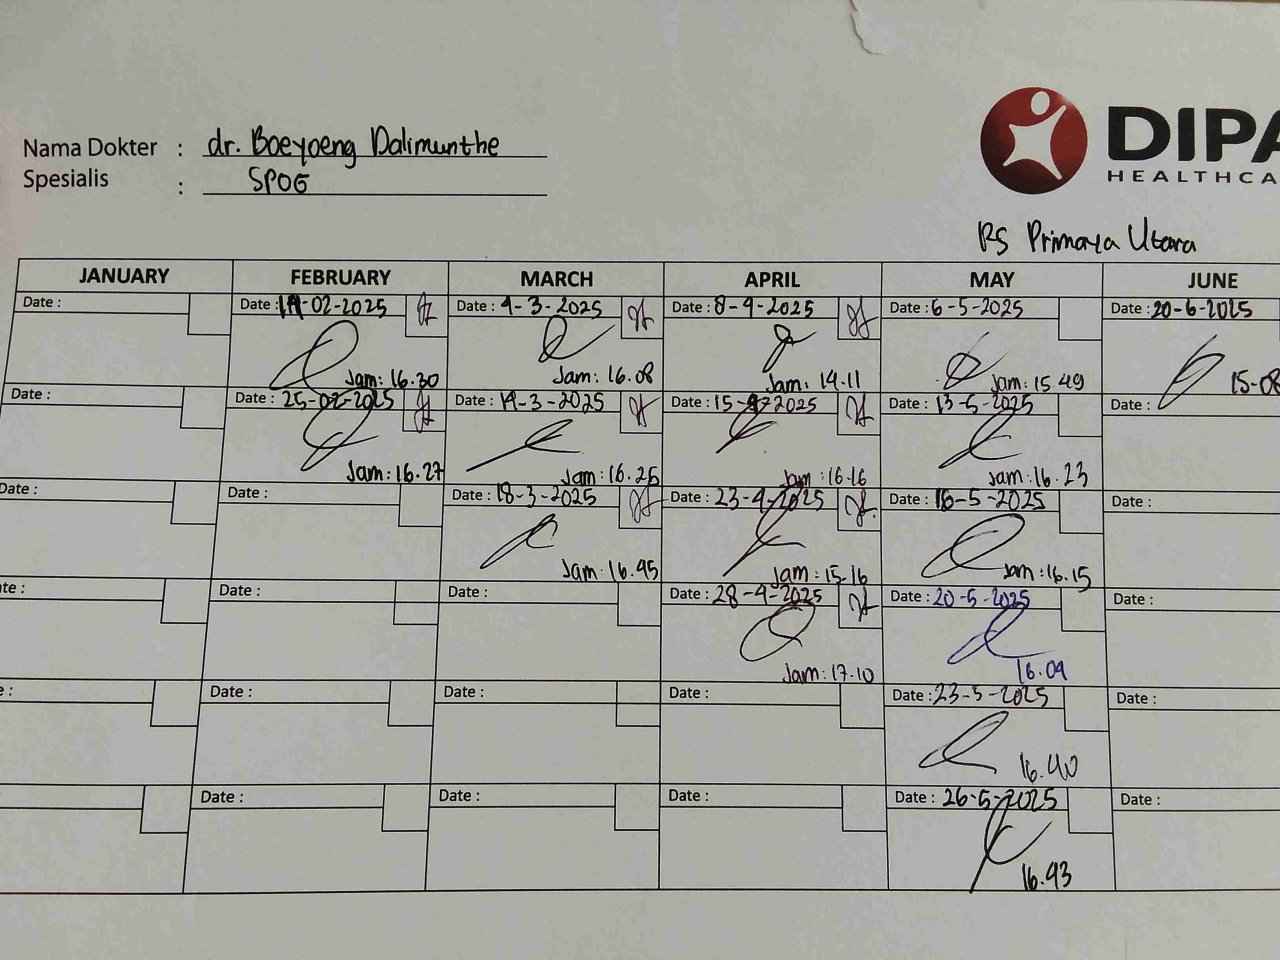 Nama Dokter : dr. Boeyoeng Dalimunthe
Spesialis : SPOG
DIPA
HEALTHCA
RS Primaya Utara
JANUARY FEBRUARY MARCH APRIL MAY JUNE
Date : Date : 19-02-2025 Date : 4-3-2025 Date : 8-4-2025 Date : 6-5-2025 Date : 20-6-2025
Jam: 16.30 Jam: 16.08 Jam: 14.11 Jam: 15 49 15-08
Date : Date : 25-02-2025 Date : 14-3-2025 Date : 15-4-2025 Date : 13-5-2025 Date :
Jam: 16.27 Jam: 16.25 Jam: 16.16 Jam: 16.23
Date : Date : Date : 18-3-2025 Date : 23-4-2025 Date : 16-5-2025 Date :
Jam: 16.45 Jam: 15.16 Jam: 16.15
te : Date : Date : Date : 28-4-2025 Date : 20-5-2025 Date :
Jam: 17.10 16.09
e : Date : Date : Date : Date : 23-5-2025 Date :
16.40
Date : Date : Date : Date : 26-5-2025 Date :
16.43